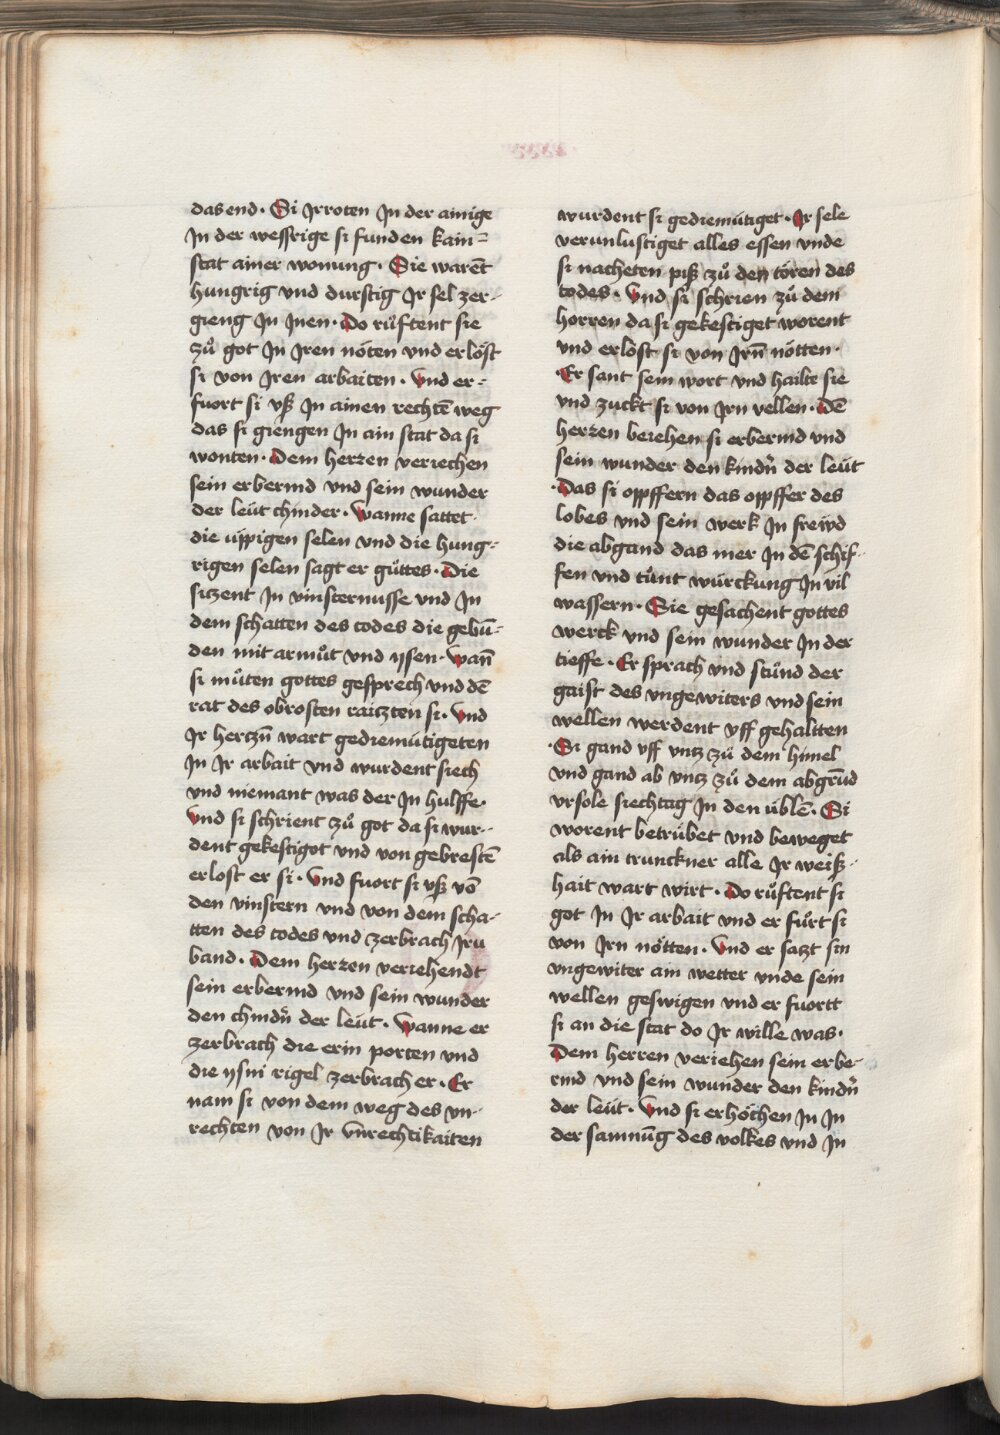 das end · Si Jrroten Jn der ainige
Jn der wessrige si funden kain=
stat ainer wonung · Sie warēt
hungrig vnd durstig Jr sel zer-
gieng Jn Jnen · Do růftent sie
zů got Jn Jren nöten vnd erlöst
si von Jren arbaiten · Vnd er-
fuort si vß Jn ainen rechtē weg
das si giengen Jn ain stat da si
wonten · Dem herzen veriechen
sein erbermd vnd sein wunder
der leüt chinder · Wanne sattet
die üppigen selen vnd die hung-
rigen selen sagt er gůttes · Die
sizent Jn vinsternusse vnd Jn
dem schatten des todes die gebū-
den mit armůt vnd ysen · Wañ
si můten gottes gesprech vnd dē
rat des obrosten raiczten si · Vnd
Jr herczn̄ wart gediemütigeten
Jn Jr arbait vnd wurdent siech
vnd niemant was der Jn hulffe ·
Vnd si schrient zů got da si wur-
dent gekestigot vnd von gebrestē
erlost er si · Vnd fuort si vß vō
den vinstern vnd von dem scha-
tten des todes vnd zerbrach Jru
band · Dem herzen veriehendt
sein erbermd vnd sein wunder
den chindn̄ der leüt · Wanne er
zerbrach die erin porten vnd
die ysni rigel zerbrach er · Er
nam si von dem weg des vn-
rechten von Jr vnrechtikaiten
wurdent si gediemütiget · Jr sele
verunlustiget alles essen vnde
si nacheten piß zů den tören des
todes · Vnd si schrien zů dem
horren da si gekestiget worent
vnd erlöst si von Jrn̄ nötten ·
Er sant sein wort vnd hailte sie
vnd zuckt si von Jrn vellen · Dē
herzen beiehen si erbermd vnd
sein wunder den kindn̄ der leüt
· Das si oppffern das oppffer des
lobes vnd sein werk Jn freẅd
die abgand das mer Jn dē schif-
fen vnd tůnt würckung Jn vil
wassern · Sie gesachent gottes
werck vnd sein wunder Jn der
tieffe · Er sprach vnd stůnd der
gaist des vngewiters vnd sein
wellen werdent vff gehaltten
· Si gand vff vntz zů dem himel
vnd gand ab vntz zů dem abgrūd
vr sole siechtag Jn den üblē · Si
worent betrübet vnd beweget
als ain trunckner alle Jr weiß-
hait wart wirt · Do růftent si
got Jn Jr arbait vnd er fůrt si
von Jrn nötten · Vnd er sazt sin
vngewiter ain wetter vnde sein
wellen geswigen vnd er fuortt
si an die stat do Jr wille was ·
Dem herren veriehen sein erbe-
rmd vnd sein wunder den kindn̄
der leüt · Vnd si erhöchen Jn Jn
der samnūg des volkes vnd Jn